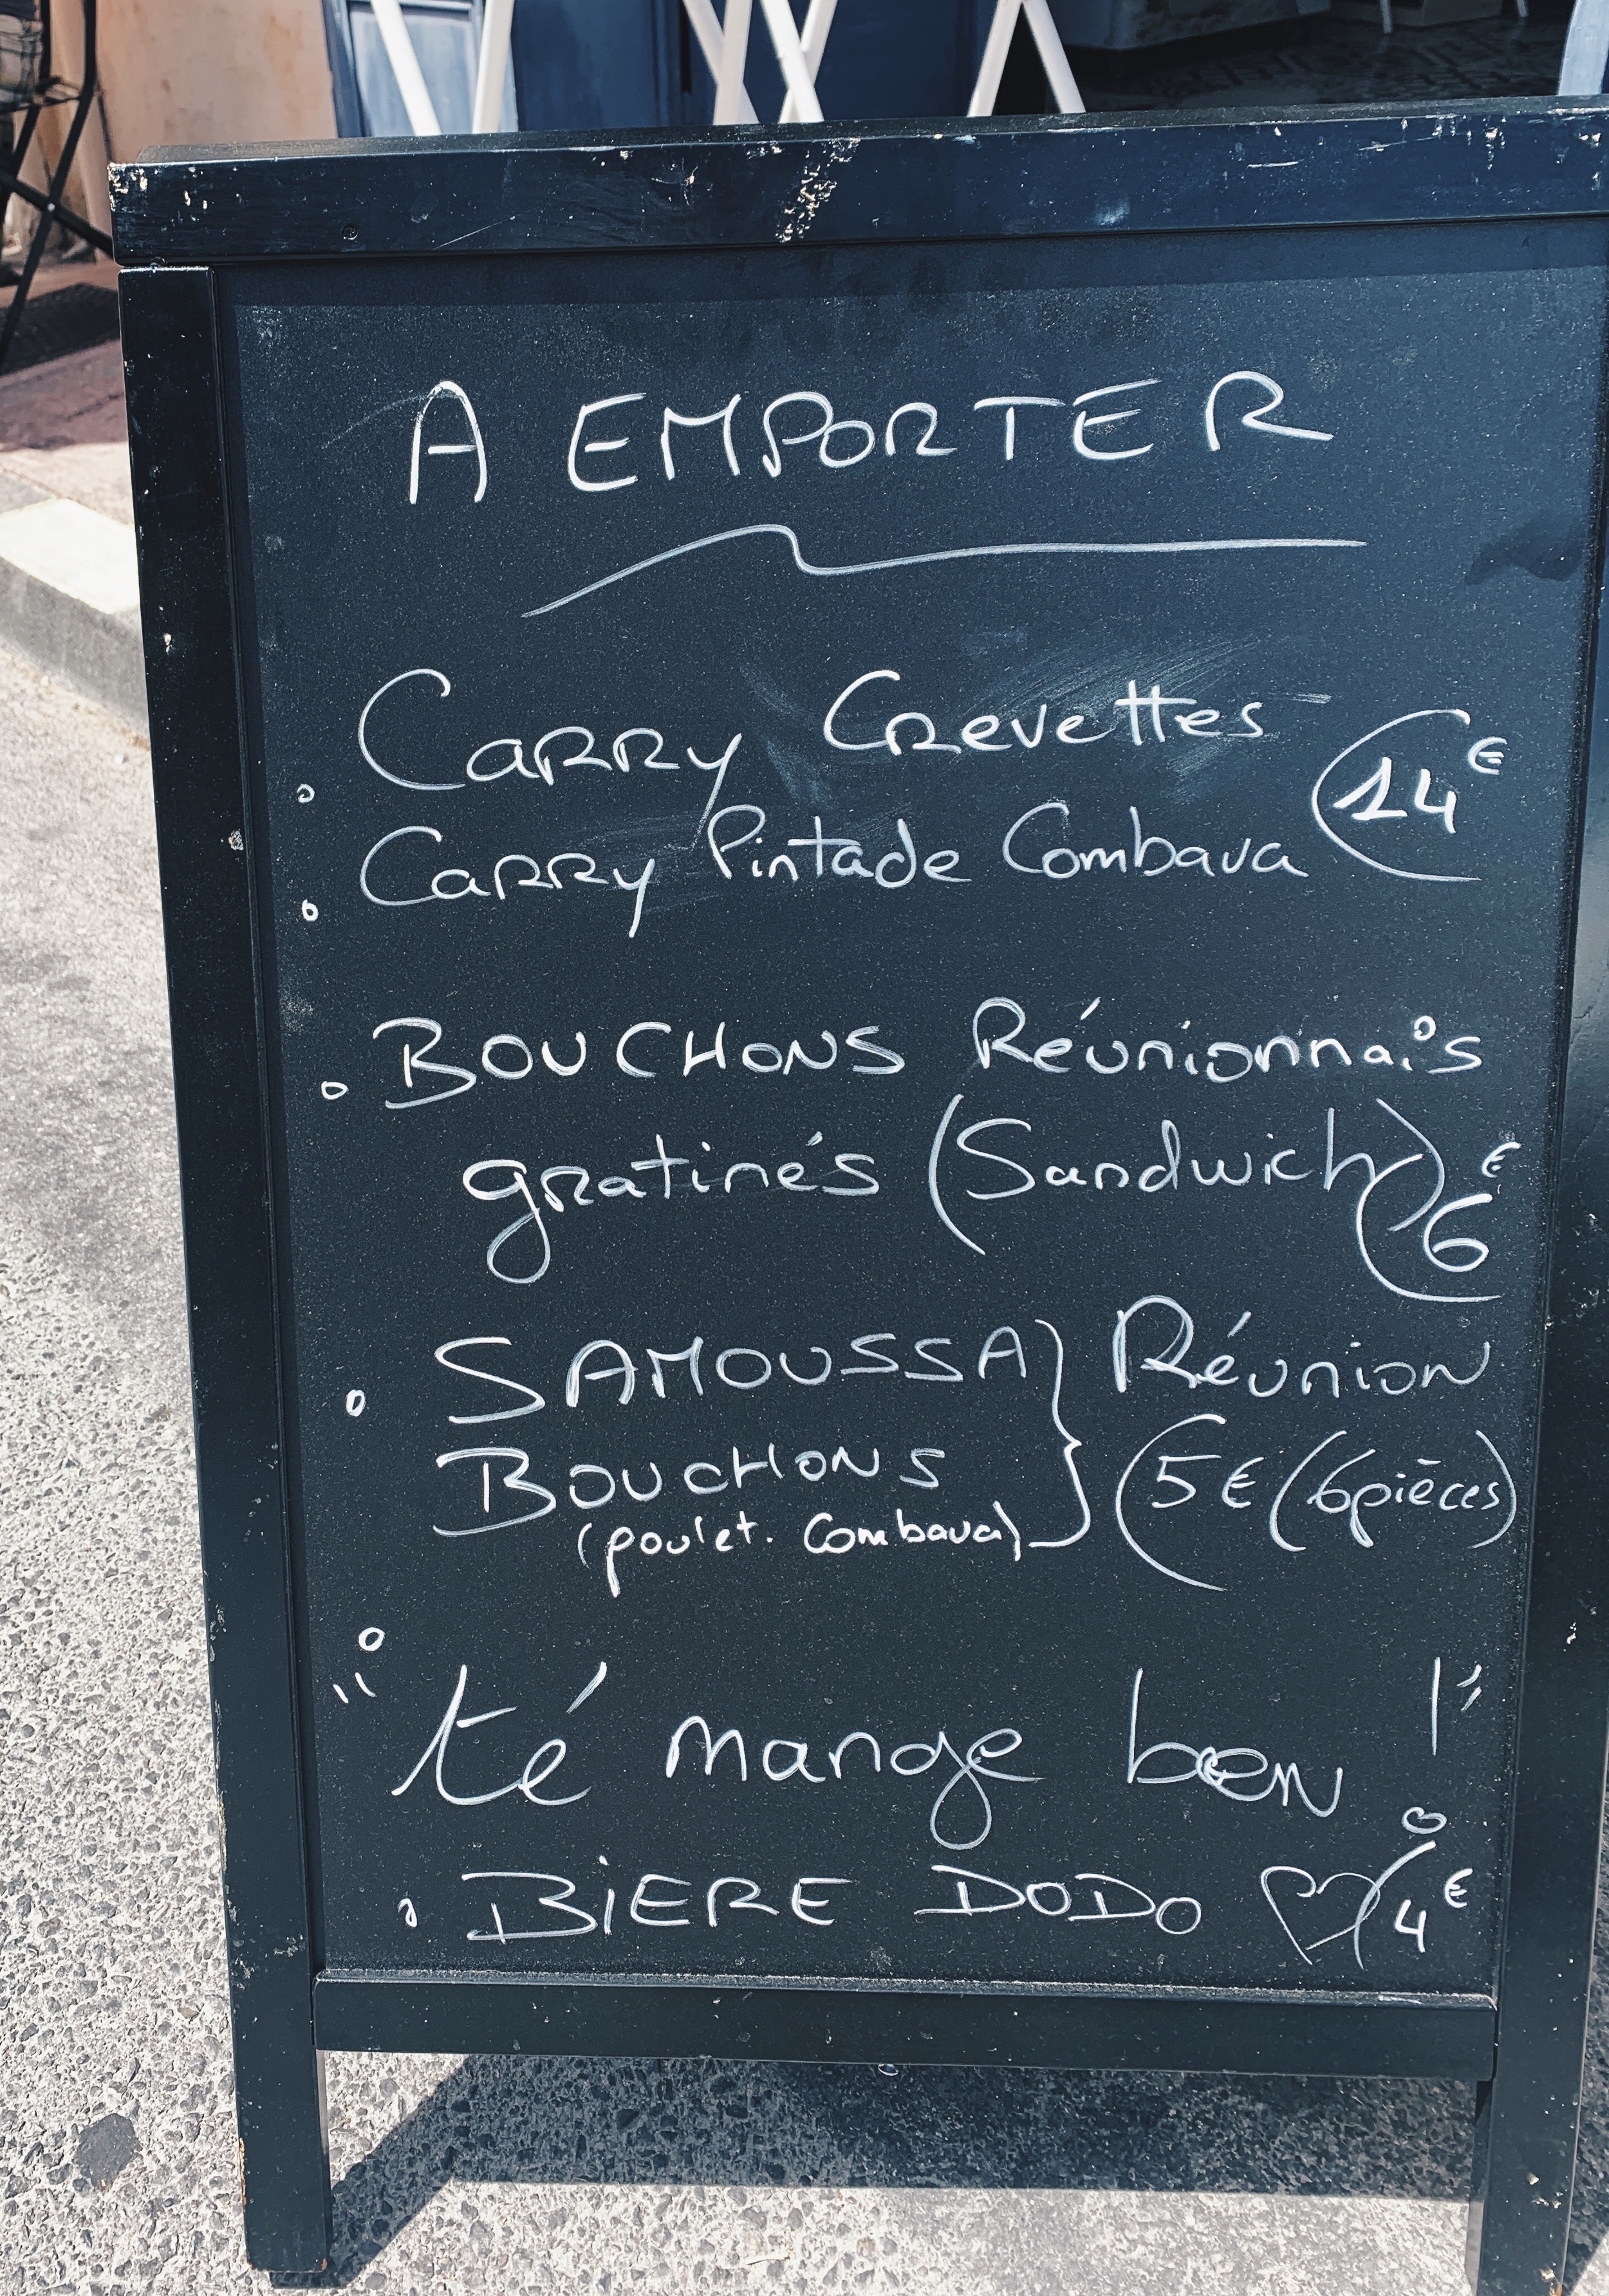 A EMPORTER
Carry Crevettes
Carry Pintade Combava 14€
BOUCHONS Réunionnais
gratinés (Sandwich) 6€
SAMOUSSA } Réunion
BOUCHONS 5€ (6pièces)
(poulet. Combava)
"té mange ben !"
BiERE DODO ♡ 4€